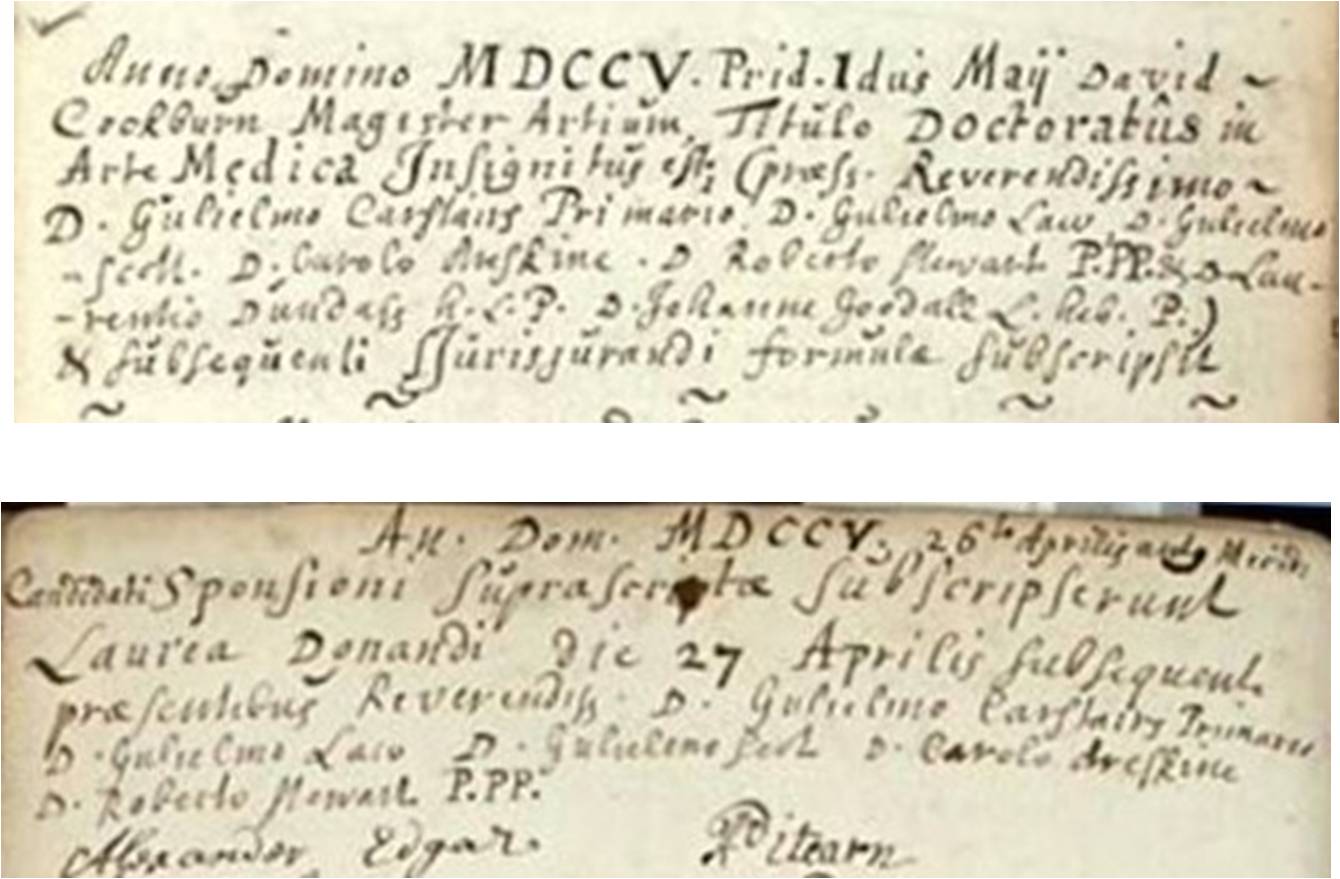 Anno Domino MDCCV. Prid. Idus Maij David ~
Cockburn Magister Artium, Titulo Doctoratûs in
Arte Medica Insignitus est; (præss. Reverendissimo ~
D. Gulielmo Carstairs Primario. D. Gulielmo Law, D. Gulielmo
-Scott. D. Carolo Areskine. D Roberto Stewart P.PP. & D. Lau-
-rentio Dundass h. L. P. D. Johanne Goodall L. heb. P.)
& subsequenti Jurisjurandi formulæ subscripsit
~ ~ ~ ~ ~
An. Dom. MDCCV. 26to Aprilis Merid.
Candidati Sponsioni suprascriptæ subscripserunt
Laurea Donandi die 27 Aprilis subsequent.
præsentibus Reverendiss. D. Gulielmo Carstairs Primario
D. Gulielmo Law D. Gulielmo Scot D. Carolo Areskine
D. Roberto Stewart P.PP.
Alexander Edgar. Pitcarn